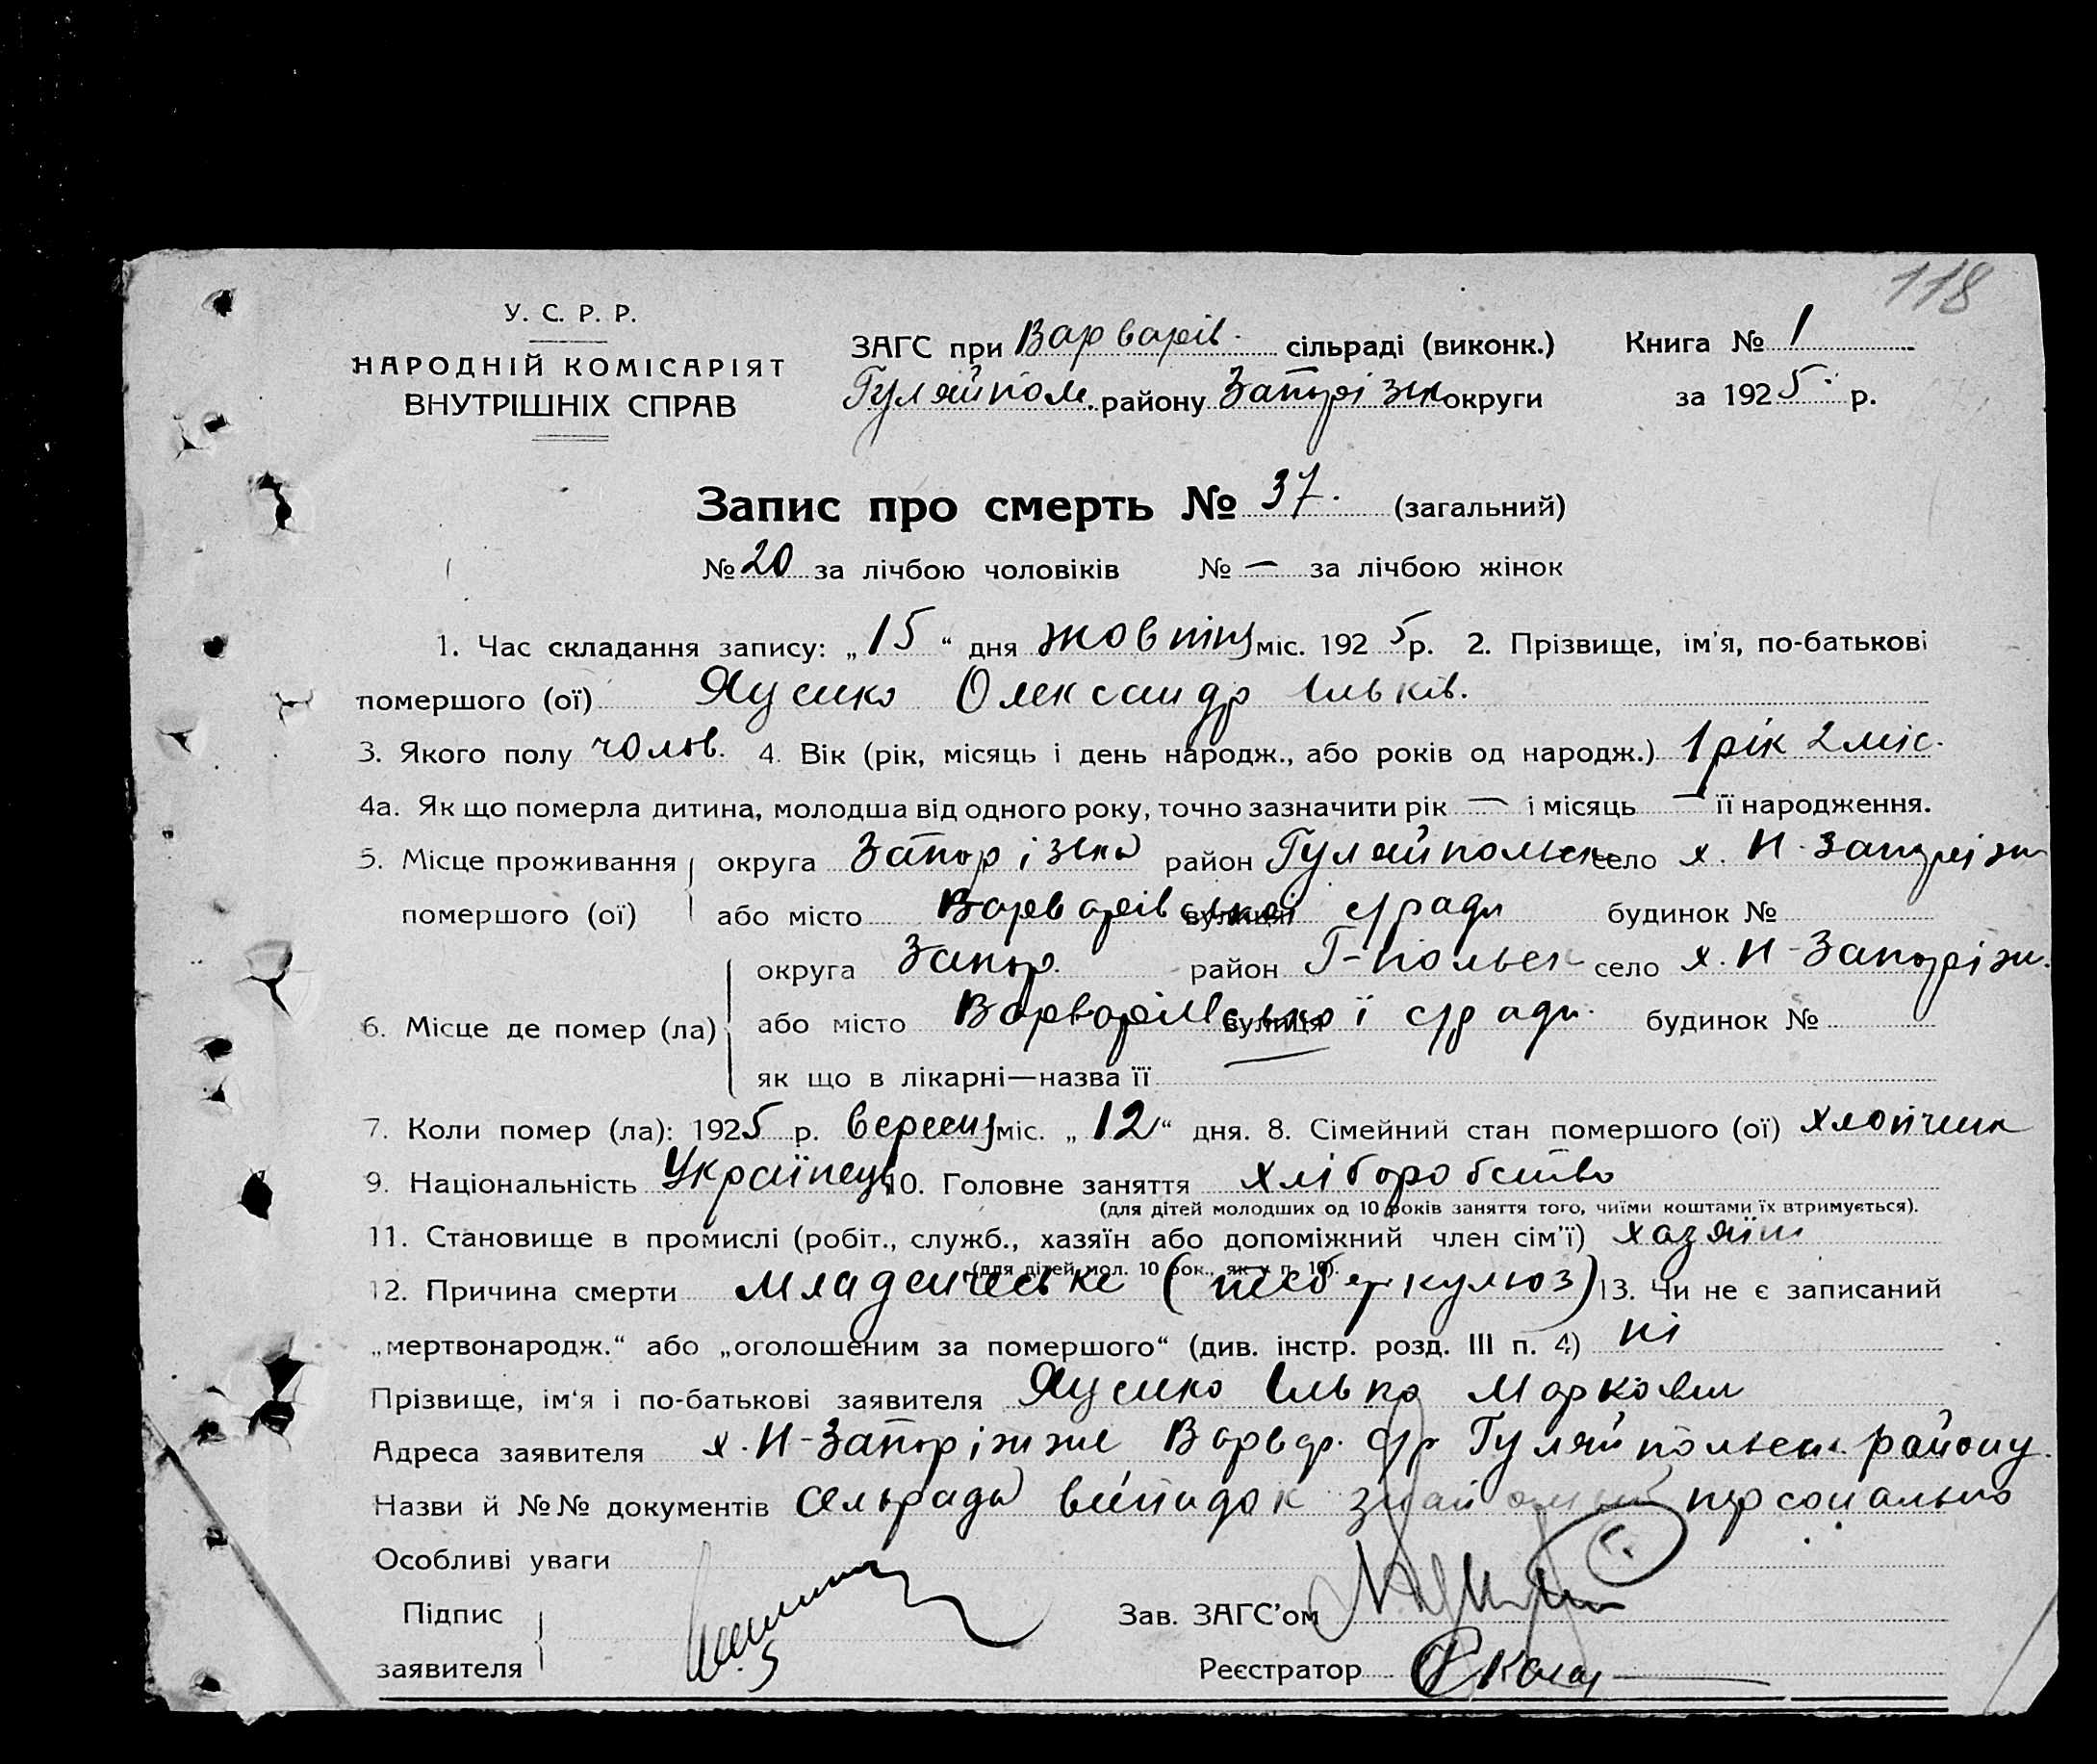 118
У. С. Р. Р.
НАРОДНІЙ КОМІСАРІЯТ
ВНУТРІШНІХ СПРАВ
ЗАГС при Варварів. сільраді (виконк.) Книга № 1
Гуляйпол. району Запорізьк округи за 1925 р.
Запис про смерть № 37. (загальний)
№ 20 за лічбою чоловіків № — за лічбою жінок
1. Час складання запису: „15“ дня жовтня міс. 1925 р. 2. Прізвище, ім'я, по-батькові
помершого (ої) Яценко Олександр Ільків.
3. Якого полу чолов. 4. Вік (рік, місяць і день народж., або років од народж.) 1 рік 2 міс.
4а. Як що померла дитина, молодша від одного року, точно зазначити рік — і місяць — її народження.
5. Місце проживання округа Запорізька район Гуляйпольск село х. Н-Запоріжж
помершого (ої) або місто Варварівської вулиця с/ради будинок №
округа Запор. район Г-польск село х. Н-Запоріж.
6. Місце де помер (ла) або місто Варварівської вулиця с/ради. будинок №
як що в лікарні—назва її —
7. Коли помер (ла): 1925 р. вересня міс. „12“ дня. 8. Сімейний стан помершого (ої) хлопчик
9. Національність Українець 10. Головне заняття хліборобство
(для дітей молодших од 10 років заняття того, чиїми коштами їх втримується).
11. Становище в промислі (робіт., служб., хазяїн або допоміжний член сім'ї) хазяїн
(для дітей мол. 10 рок., як у п. 10).
12. Причина смерти младенческе (теберкульоз) 13. Чи не є записаний
„мертвонародж.“ або „оголошеним за помершого“ (див. інстр. розд. III п. 4) ні
Прізвище, ім'я і по-батькові заявителя Яценко Ілько Маркович
Адреса заявителя х. Н-Запоріжже Варвар. с/р Гуляйпольськ. району.
Назви й №№ документів сельради випадок знайомий персонально
Особливі уваги
Підпис
заявителя
Зав. ЗАГС'ом
Реєстратор